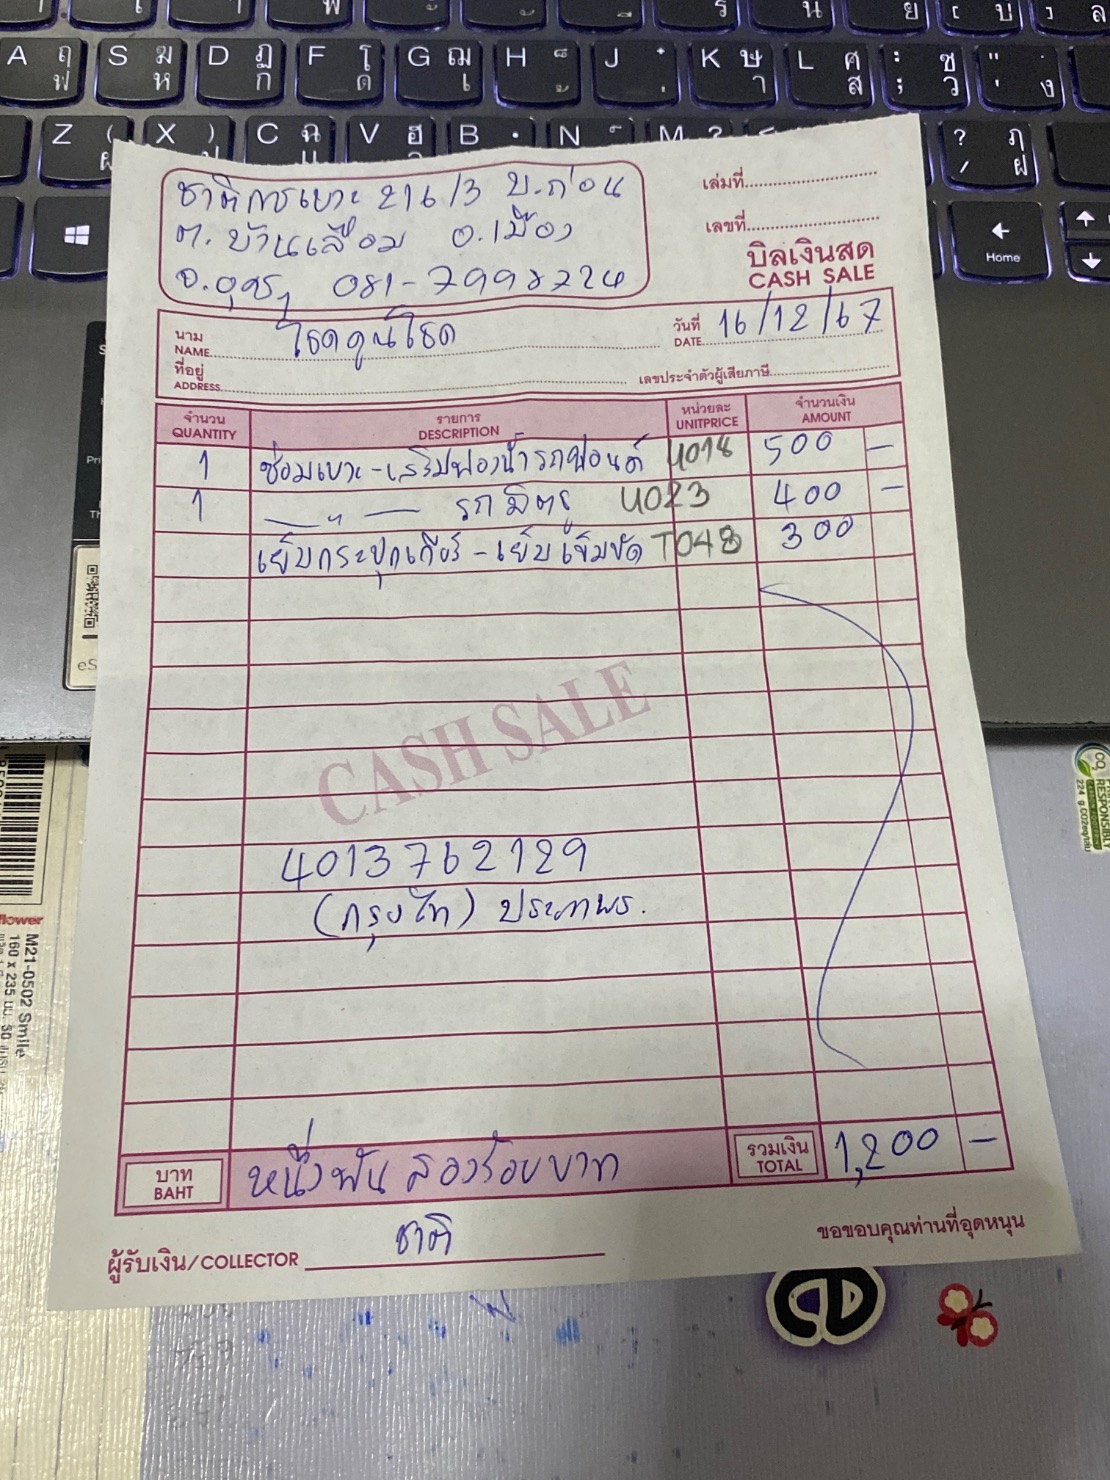 A ฤ ฟ S ฆ ห D ฏ ก F โ ด G ฌ เ H ็ ้ J ๋ ่ K ษ า L ศ ส : ; ซ ว " ' . ง
Z ( ผ X ) ป C ฉ แ V ฮ อ B N M ? ? / ฦ ฝ
Home
ชาติการเบาะ 216/3 บ.ก่อน
ต.บ้านเลื่อม อ.เมือง
จ.อุดรฯ 081-7998224
เล่มที่
เลขที่
บิลเงินสด
CASH SALE
นาม
NAME โชคคูณโชค
วันที่
DATE 16/12/67
ที่อยู่
ADDRESS
เลขประจำตัวผู้เสียภาษี
จำนวน รายการ หน่วยละ จำนวนเงิน
QUANTITY DESCRIPTION UNITPRICE AMOUNT
1 ซ่อมเบาะ-เสริมฟองน้ำรถฟอนต์ U018 500 –
1 —〃— รถมิตรฯ U023 400 –
เย็บกระปุกเกียร์-เย็บเข็มขัด T048 300
CASH SALE
4013762129
(กรุงไท) ประภาพร.
บาท
BAHT หนึ่งพันสองร้อยบาท
รวมเงิน
TOTAL 1,200 –
ผู้รับเงิน/COLLECTOR ชาติ
ขอขอบคุณท่านที่อุดหนุน
flower
M21-0502 Smile
RESPONSIBLY
CD